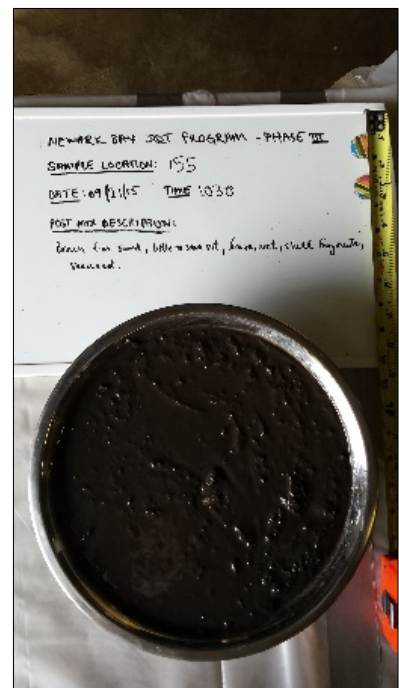 NEWARK BAY SQT PROGRAM - PHASE III
SAMPLE LOCATION: 155
DATE: 09/21/15 TIME 1030
POST MIX DESCRIPTION:
Brown fine sand, little silt, wet, shell fragments,
seaweed.